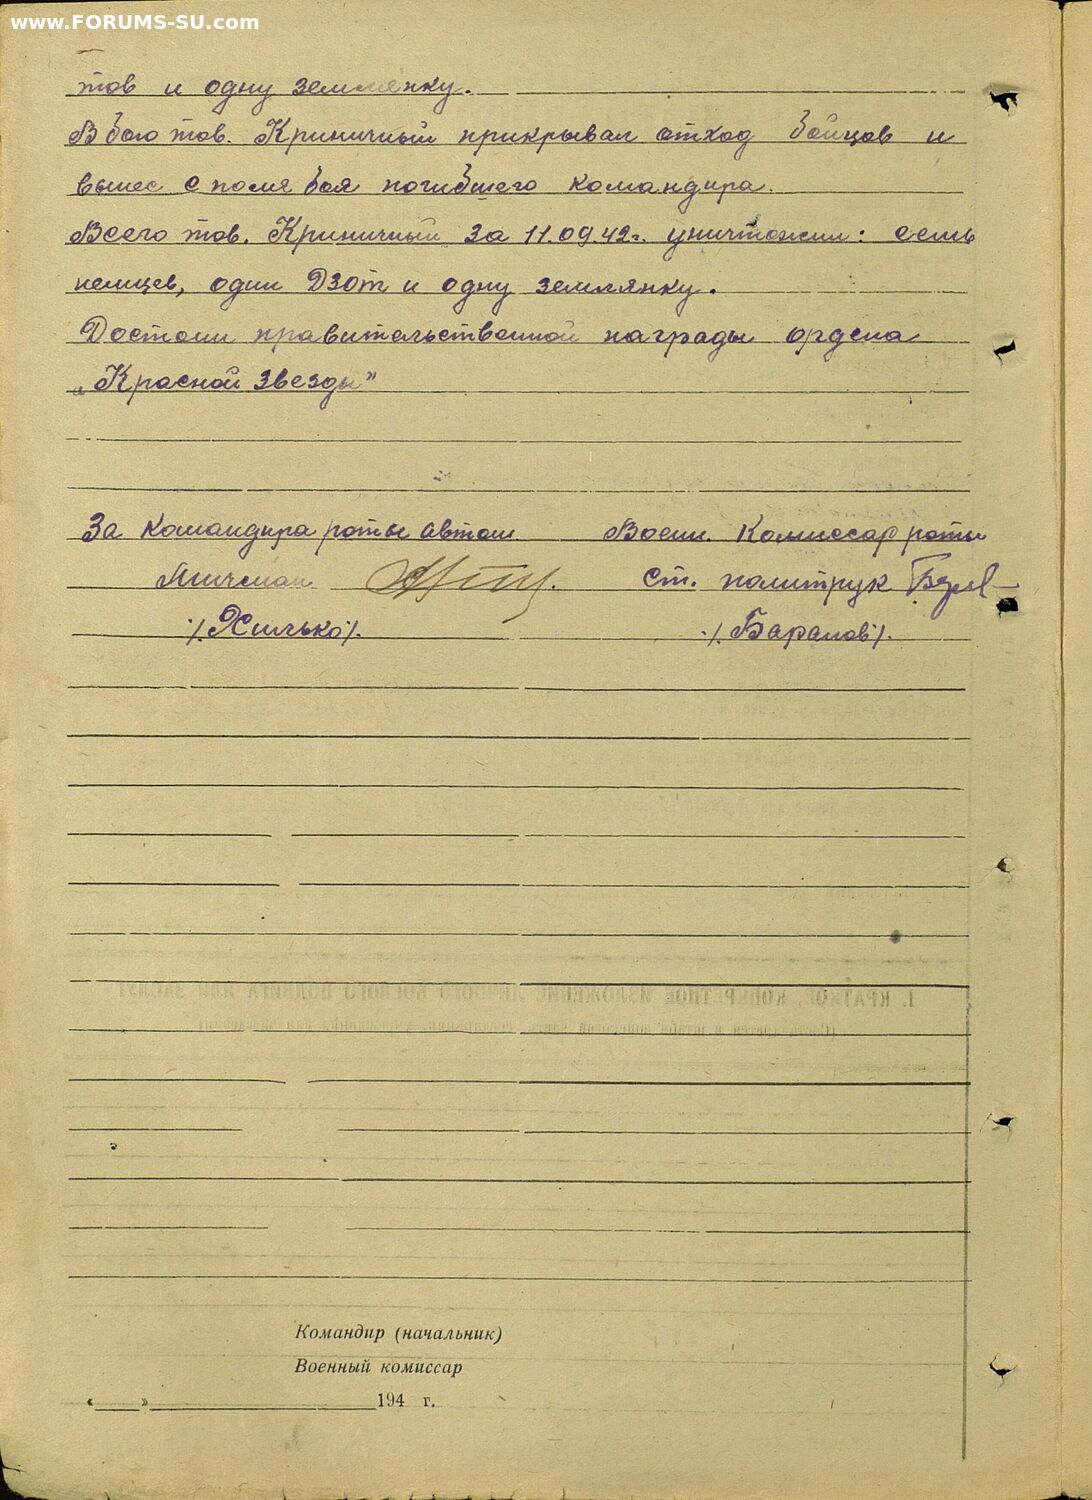 www.FORUMS-SU.com
тов и одну землянку.
В бою тов. Криничный прикрывал отход бойцов и
вынес с поля боя погибшего командира.
Всего тов. Криничный за 11.09.42г. уничтожил: семь
немцев, один ДЗОТ и одну землянку.
Достоин правительственной награды ордена
„Красной Звезды"
За командира роты автом. Воен. Комиссар роты
Мичман ст. политрук
/. Хилько /. ./. Баранов /.
1. КРАТКОЕ, КОНКРЕТНОЕ ИЗЛОЖЕНИЕ ЛИЧНОГО БОЕВОГО ПОДВИГА ИЛИ ЗАСЛУГ
Командир (начальник)
Военный комиссар
«____»____________________194 г.